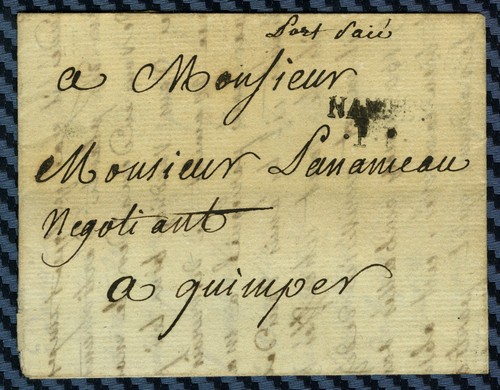 Port Paié
a Monsieur
Monsieur Lanameau
Negotiant
a quimper